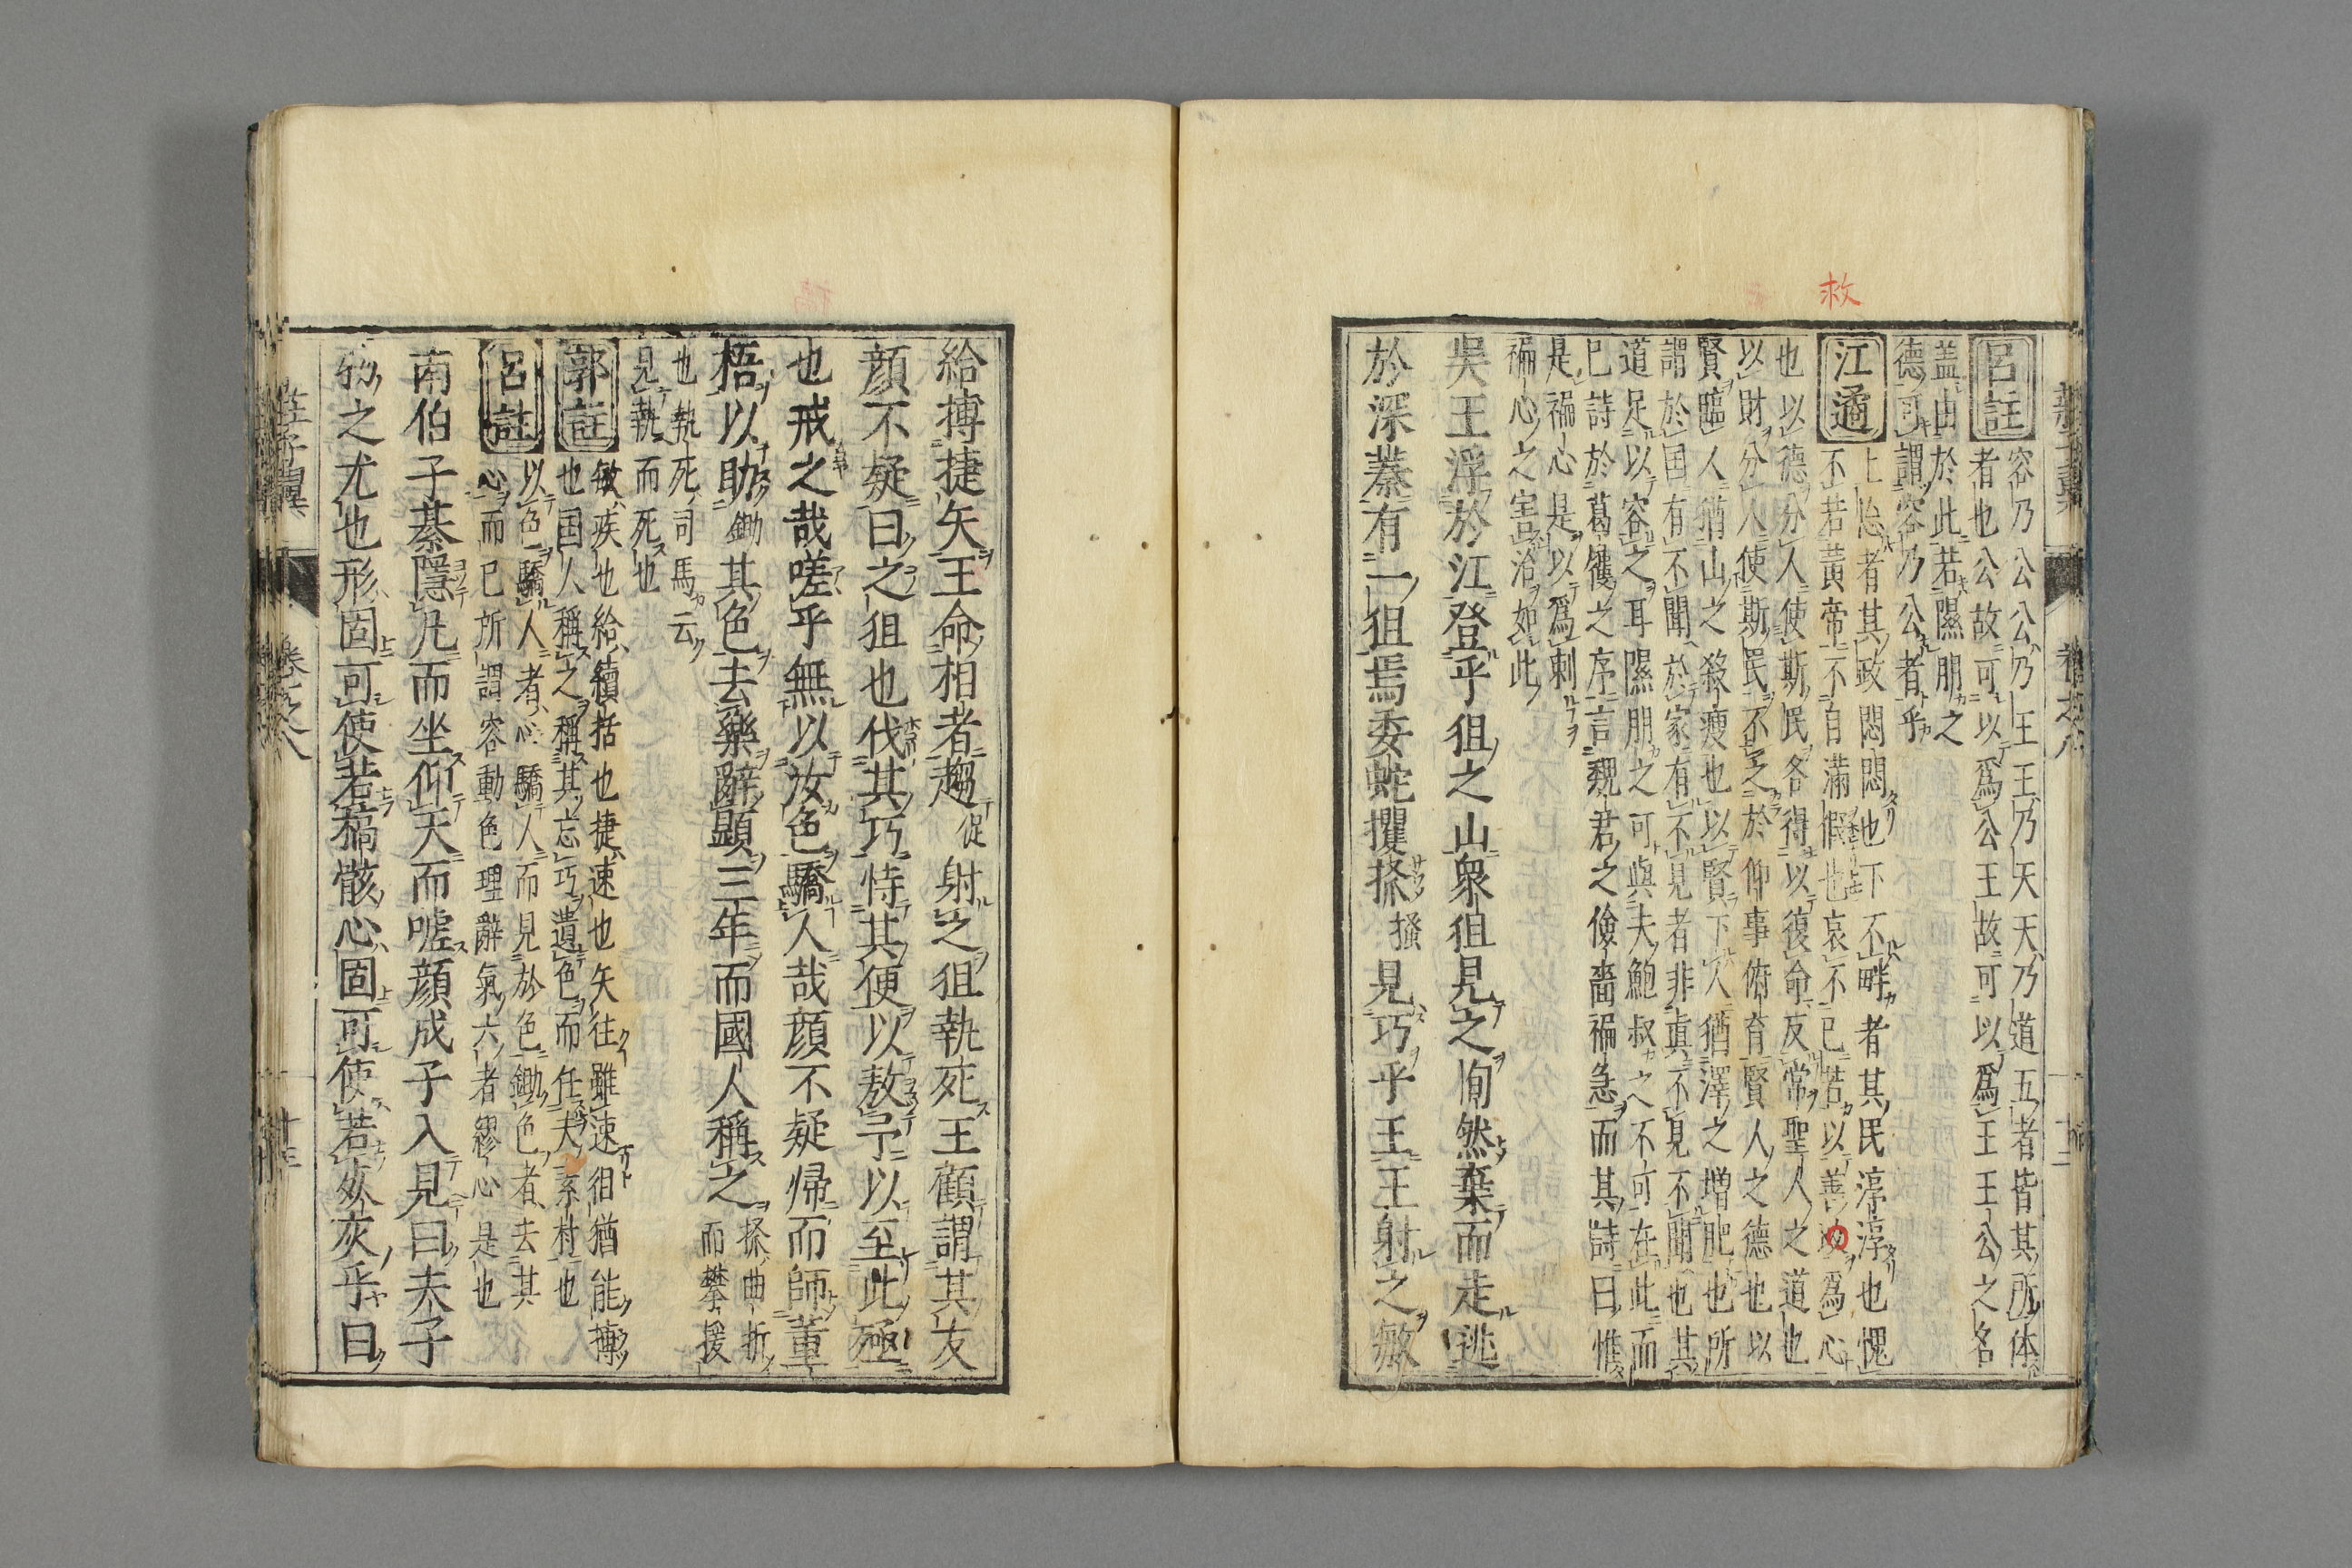 救
呂註
容乃公公乃王王乃天天乃道五者皆其所体
者也公故可以為公王故可以為王王公之名
盖由於此若隰朋之
德可謂容乃公者乎
江遹
上怡者其政悶悶也下不畔者其民淳淳也愧
不若黃帝不自滿假也哀不已若以善為心
也以德分人使斯民各得以復命反常聖人之道也
以財分人使斯民不乏於仰事俯育賢人之德也以
賢臨人猶山之殺瘦也以賢下人猶澤之增肥也所
謂於国有不聞於家有不見者非真不見不聞也其
道足以容之耳隰朋之可與夫鮑叔之不可在此而
已詩於葛屨之序言魏君之儉嗇褊急而其詩曰惟
是褊心是以為刺
褊心之害治如此
吳王浮於江登乎狙之山衆狙見之恂然棄而走逃
於深蓁有一狙焉委蛇攫搽搔見巧乎王王射之敏
給搏捷矢王命相者趨促射之狙執死王顧謂其友
顔不疑曰之狙也伐其巧恃其便以敖予以至此殛
也戒之哉嗟乎無以汝色驕人哉顔不疑帰而師董
梧以助鋤其色去樂辭顕三年而國人稱之搽曲折而攀援
也執死司馬云
見執而死也
郭註
敏疾也給續括也捷速也矢往雖速狙猶能搏
也国人稱之稱其忘巧遺色而任夫素朴也
呂註
以色驕人者心驕人而見於色鋤色者去其
心而已所謂容動色理辭氣六者繆心是也
南伯子綦隱几而坐仰天而噓顔成子入見曰夫子
物之尤也形固可使若槁骸心固可使若死灰乎曰
莊子翼
卷之八
十三